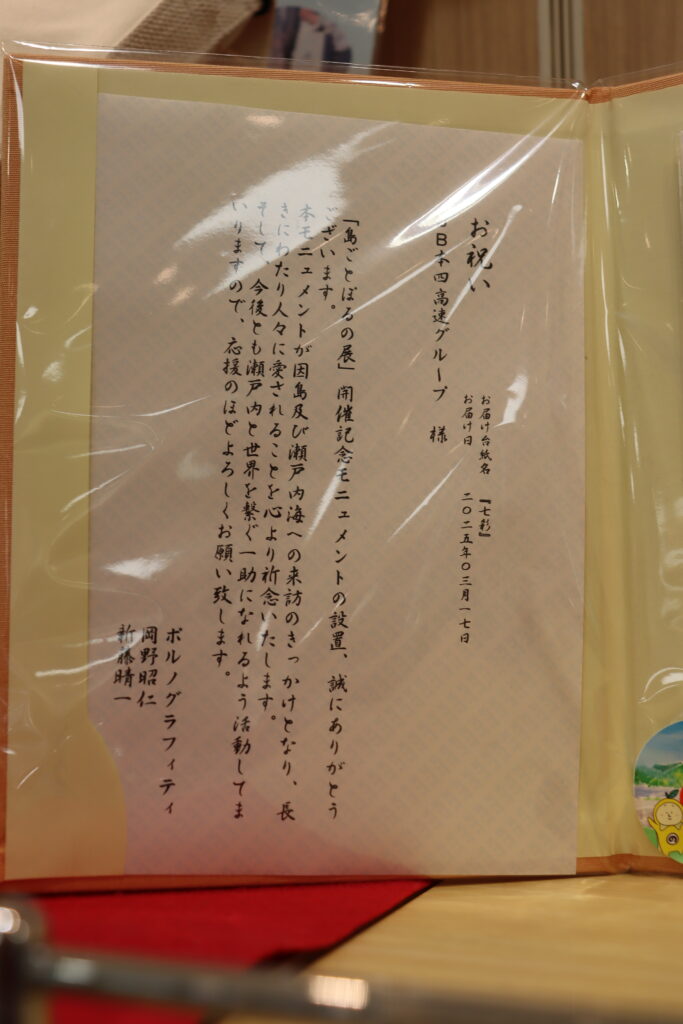 お届け台紙名 『七彩』
お届け日 二〇二五年〇三月一七日
お祝い
JB本四高速グループ 様
「島ごとぽるの展」開催記念モニュメントの設置、誠にありがとう
ございます。
本モニュメントが因島及び瀬戸内海への来訪のきっかけとなり、長
きにわたり人々に愛されることを心より祈念いたします。
そして、今後とも瀬戸内と世界を繋ぐ一助になれるよう活動してま
いりますので、応援のほどよろしくお願い致します。
ポルノグラフィティ
岡野昭仁
新藤晴一